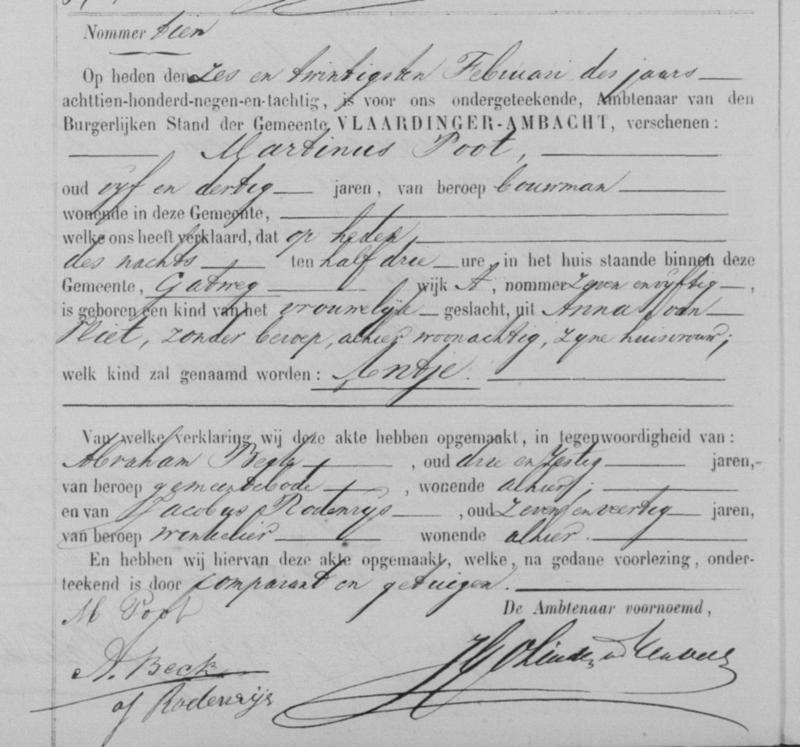 Nommer tien
Op heden den Zes en twintigsten Februari des jaars
achttien-honderd-negen-en-tachtig, is voor ons ondergeteekende, Ambtenaar van den
Burgerlijken Stand der Gemeente VLAARDINGER-AMBACHT, verschenen:
Martinus Poot,
oud vijf en dertig jaren, van beroep bouwman
wonende in deze Gemeente,
welke ons heeft verklaard, dat op heden,
des nachts ten half drie ure, in het huis staande binnen deze
Gemeente, Gatweg wijk A, nommer Zeven en vijftig,
is geboren een kind van het vrouwelijk geslacht, uit Anna van
Vliet, zonder beroep, alhier woonachtig, zijne huisvrouw;
welk kind zal genaamd worden: Antje.
Van welke verklaring wij deze akte hebben opgemaakt, in tegenwoordigheid van:
Abraham Beck, oud drie en zestig jaren,
van beroep gemeentebode, wonende alhier;
en van Jacobus Rodenrijs, oud Zeven en veertig jaren,
van beroep winkelier wonende alhier.
En hebben wij hiervan deze akte opgemaakt, welke, na gedane voorlezing, onder-
teekend is door comparant en getuigen.
De Ambtenaar voornoemd,
M Poot
A. Beck
J Rodenrijs